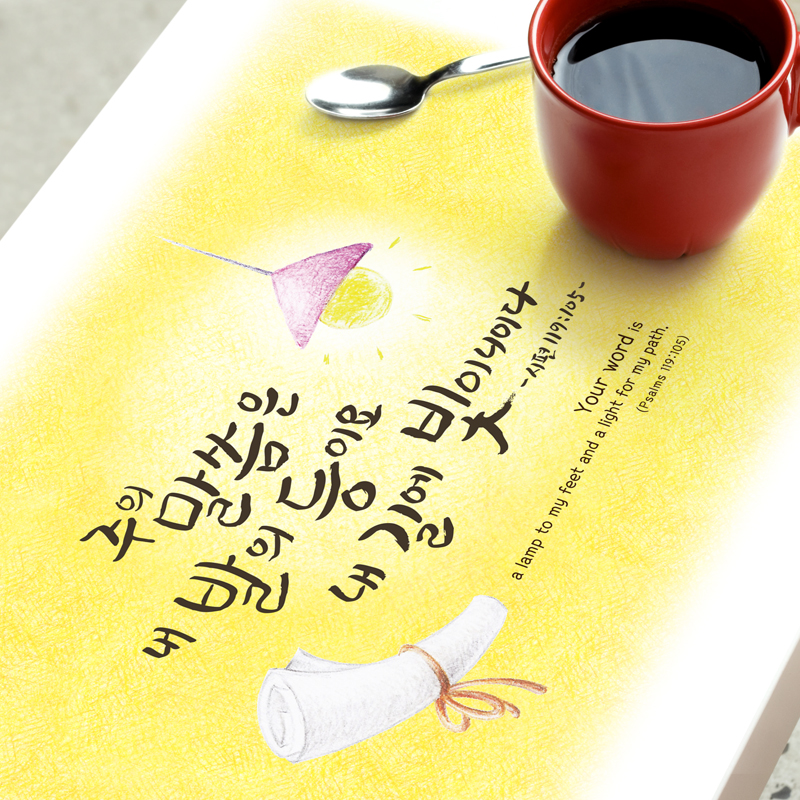 주의
말씀은
내 발의 등이요
내 길에 빛이니이다
-시편 119:105-
Your word is
a lamp to my feet and a light for my path.
(Psalms 119:105)